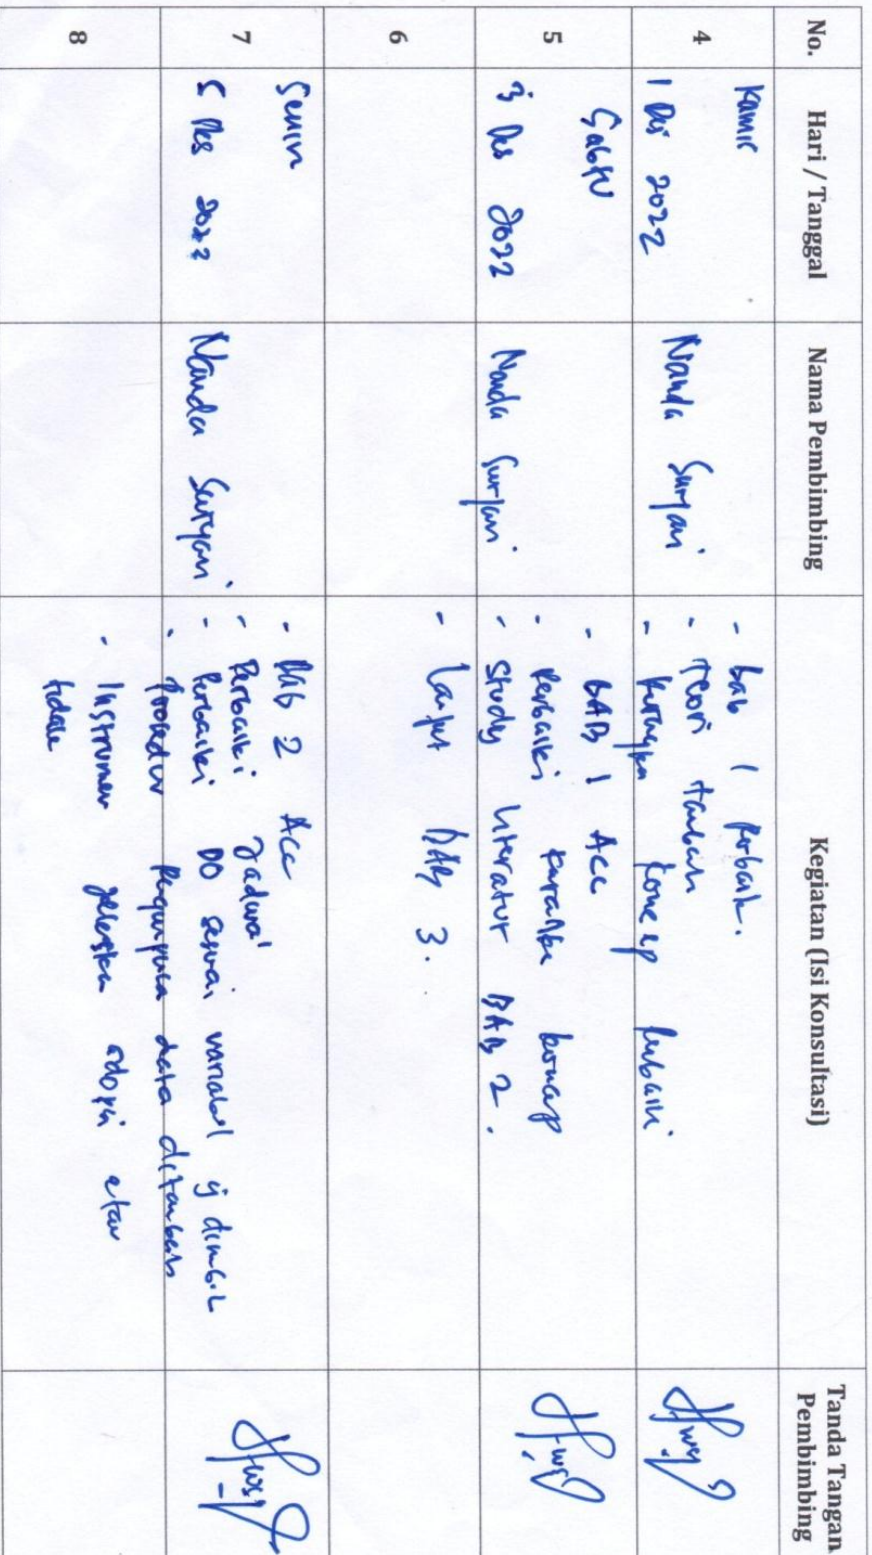 No.
Hari / Tanggal
Nama Pembimbing
Kegiatan (Isi Konsultasi)
Tanda Tangan
Pembimbing
4
Kamis
1 Des 2022
Nanda Suryani
- bab 1 Perbaik.
- Teori tambah
- Kerangka konsep Perbaiki
5
Sabtu
3 Des 2022
Nanda Suryani
- BAB 1 Acc
- Perbaiki kerangka konsep
- Study literatur BAB 2.
6
- Lanjut BAB 3.
7
Senin
5 Des 2022
Nanda Suryani
- Bab 2 Acc
- Perbaiki Jadwal
- Perbaiki DO sesuai variabel yg diambil
- Prosedur Pengumpulan data ditambah
8
- Instrumen jelaskan adopsi atau
tidak